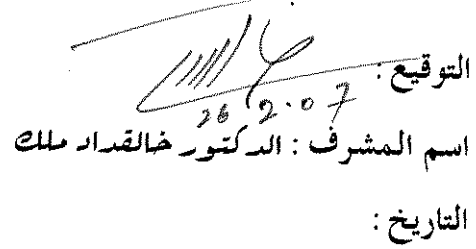 التوقيع :
26 2.07
اسم المشرف : الدكتور خالقداد ملك
التاريخ :